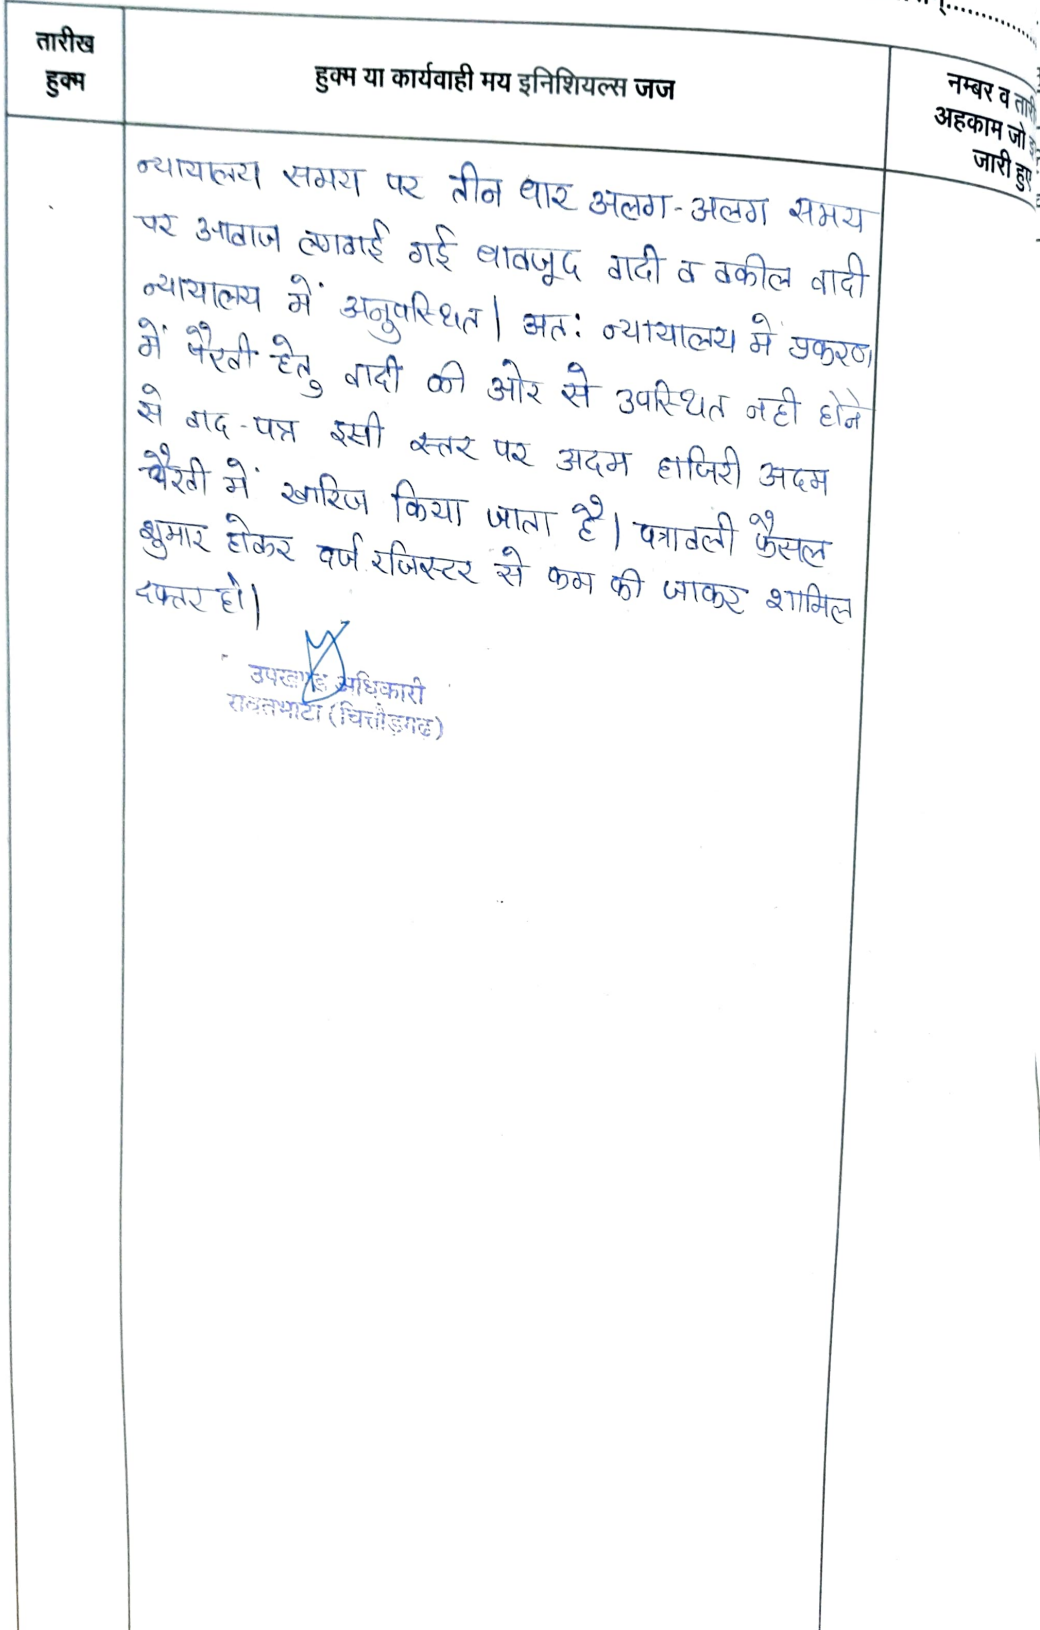 तारीख
हुक्म
हुक्म या कार्यवाही मय इनिशियल्स जज
नम्बर व
अहकाम जो
जारी हुए
न्यायालय समय पर तीन बार अलग-अलग समय
पर आवाज लगवाई गई बावजूद वादी व वकील वादी
न्यायालय में अनुपस्थित। अत: न्यायालय में प्रकरण
में पैरवी हेतु वादी की ओर से उपस्थित नही होने
से वाद-पत्र इसी स्तर पर अदम हाजिरी अदम
पैरवी में खारिज किया जाता है। पत्रावली फैसल
शुमार होकर दर्ज रजिस्टर से कम की जाकर शामिल
दफ्तर हो।
उपखण्ड अधिकारी
रावतभाटा (चित्तौड़गढ़)